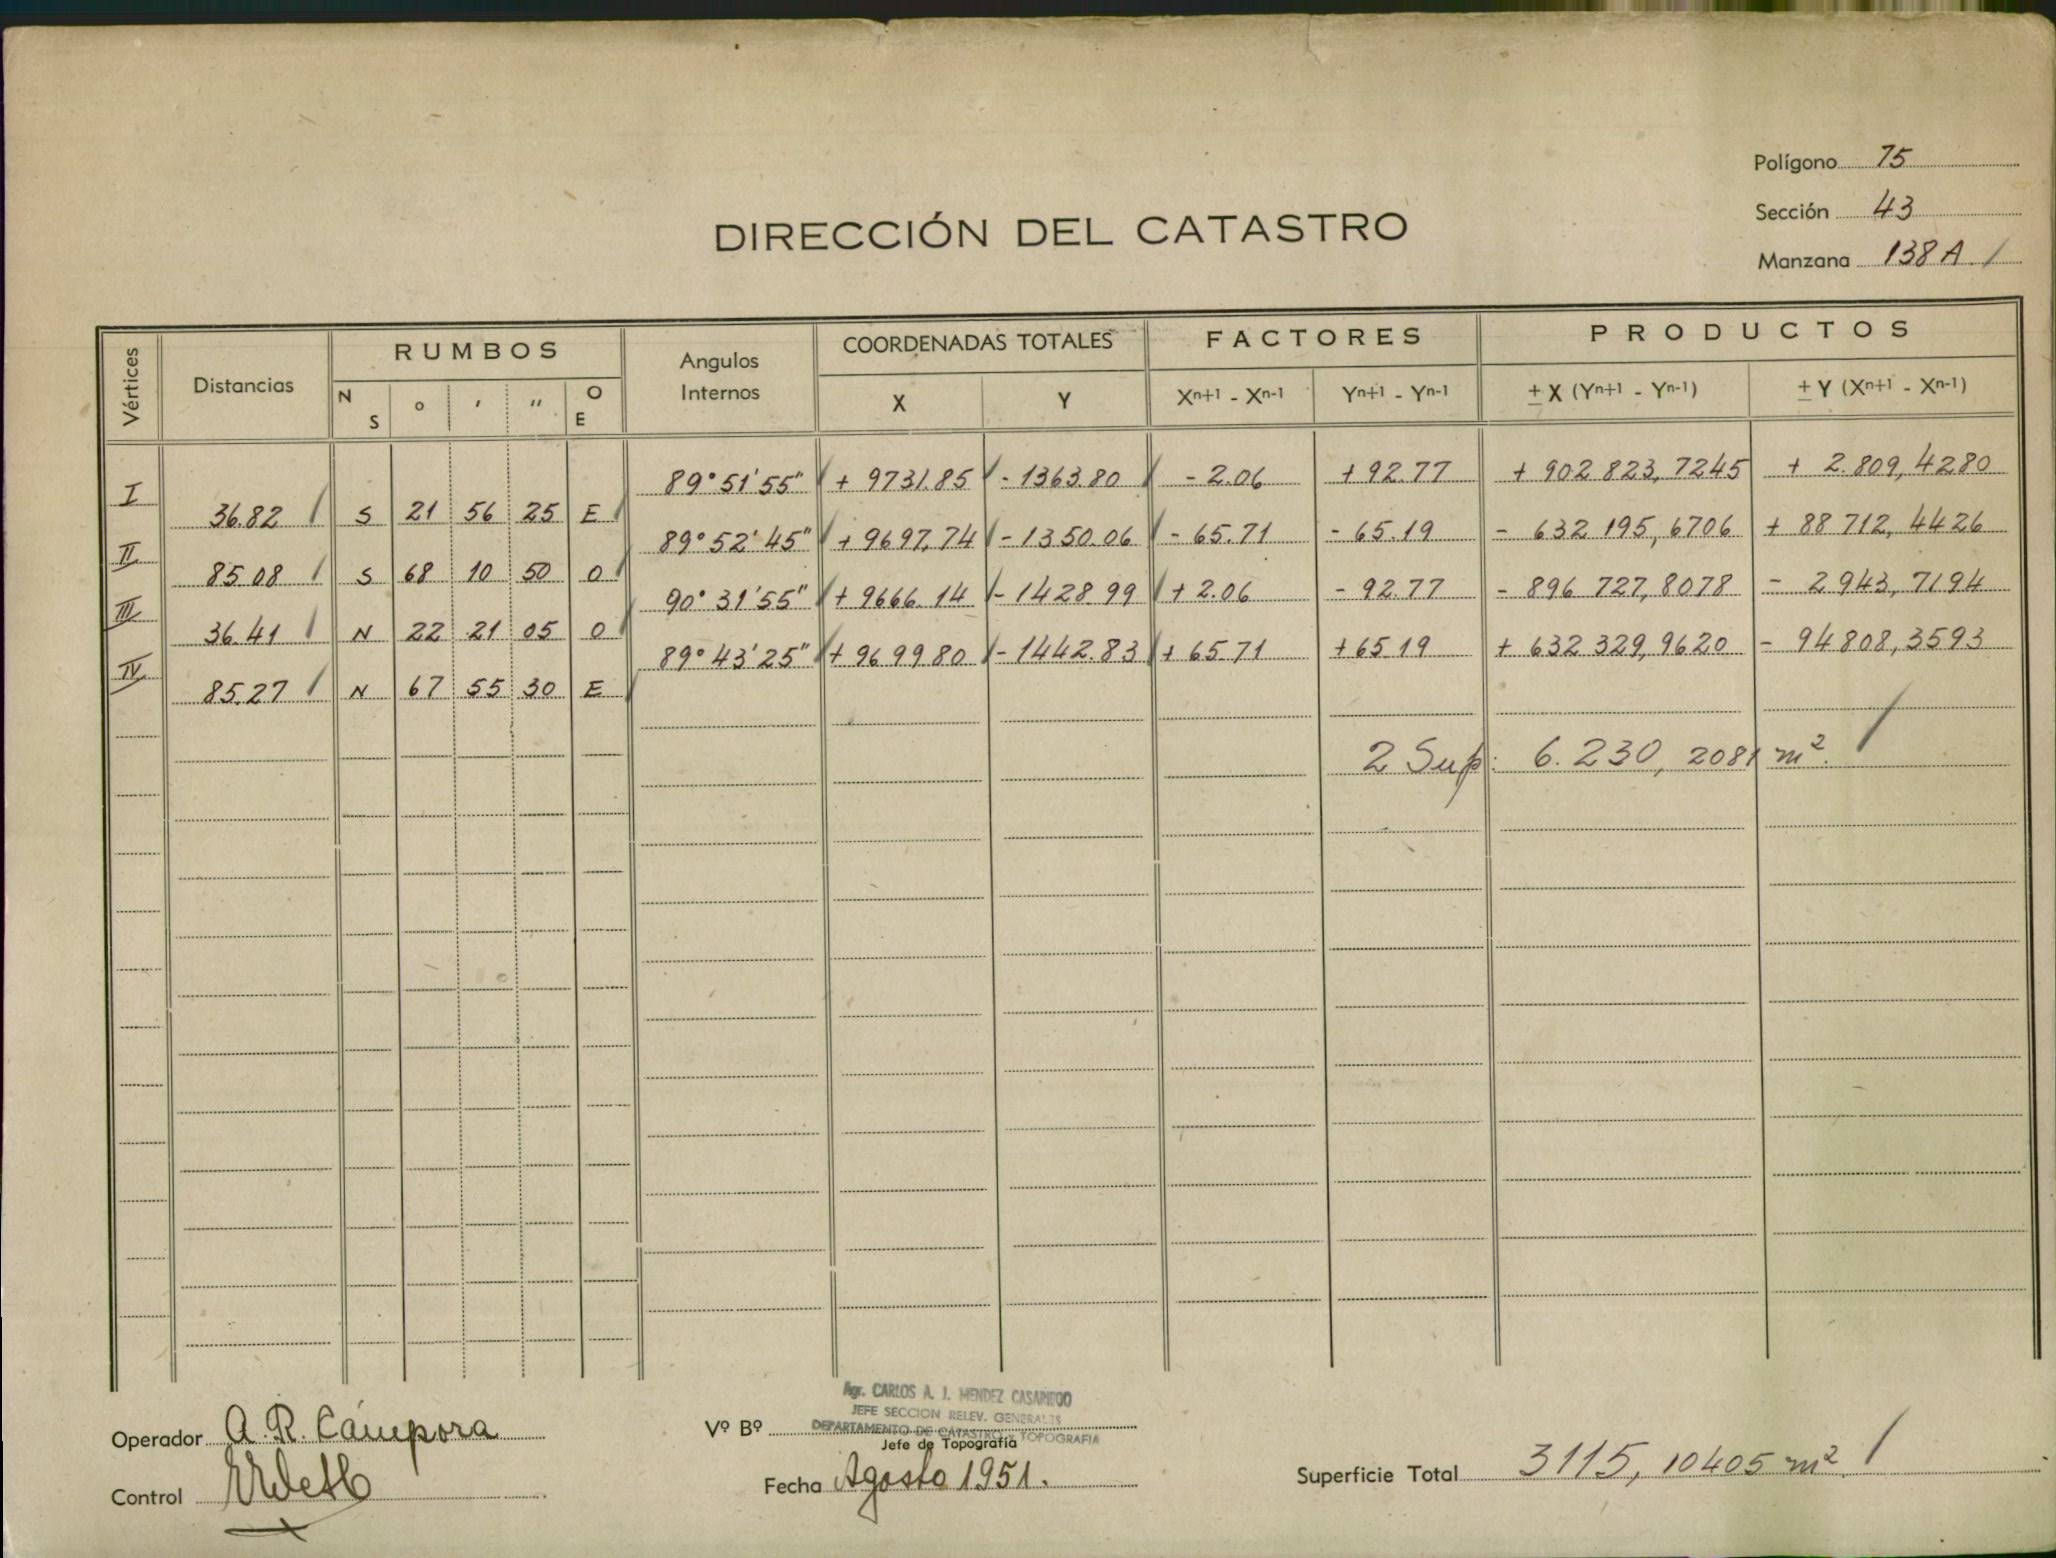 Polígono 75
Sección 43
DIRECCIÓN DEL CATASTRO
Manzana 138 A
Vértices Distancias RUMBOS Angulos Internos COORDENADAS TOTALES FACTORES PRODUCTOS
N S ° ' " O E X Y Xn+1 - Xn-1 Yn+1 - Yn-1 ± X (Yn+1 - Yn-1) ± Y (Xn+1 - Xn-1)
I 89° 51' 55" + 9731.85 - 1363.80 - 2.06 + 92.77 + 902 823,7245 + 2.809,4280
36.82 S 21 56 25 E
II 89° 52' 45" + 9697,74 - 1350.06 - 65.71 - 65.19 - 632 195,6706 + 88 712,4426
85.08 S 68 10 50 O
III 90° 31' 55" + 9666.14 - 1428.99 + 2.06 - 92.77 - 896 727,8078 - 2 943,7194
36.41 N 22 21 05 O
IV 89° 43' 25" + 9699 80 - 1442.83 + 65.71 + 65.19 + 632 329,9620 - 94 808,3593
85.27 N 67 55 30 E
2 Sup: 6.230, 2081 m².
Agr. CARLOS A. J. MENDEZ CASARIEGO
JEFE SECCION RELEV. GENERALES
Operador A. R. Cámpora Vº Bº DEPARTAMENTO DE CATASTRO y TOPOGRAFIA
Jefe de Topografía
Control Fecha Agosto 1951. Superficie Total 3115, 10405 m²